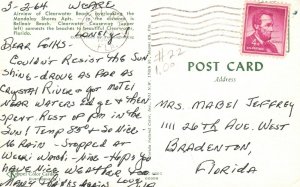 3-2-64 WeAre
Airview of Clearwater Beach, overlooking the
Mandalay Shores Apts. - in the distance,
Belleair Beach. Clearwater Causeway (upper
left) connects the beaches to beautiful Clearwater,
Florida.
Lonely
Dear Folks:
Couldn't Resist the Sun
shine - drove as far as
Crystal River & got motel
Near waters Edge & then
spent Rest of pm in the
Sun! Temp 75° & So Nice
No Rain - Stopped at
Weeki Wachi - Nice - Hope you
have Nice weather too
Many Thanks again Love
#22
1.00
POST CARD
Address
Mrs. Mabel Jeffrey
1111 26th Ave. West
Bradenton,
Florida
4¢